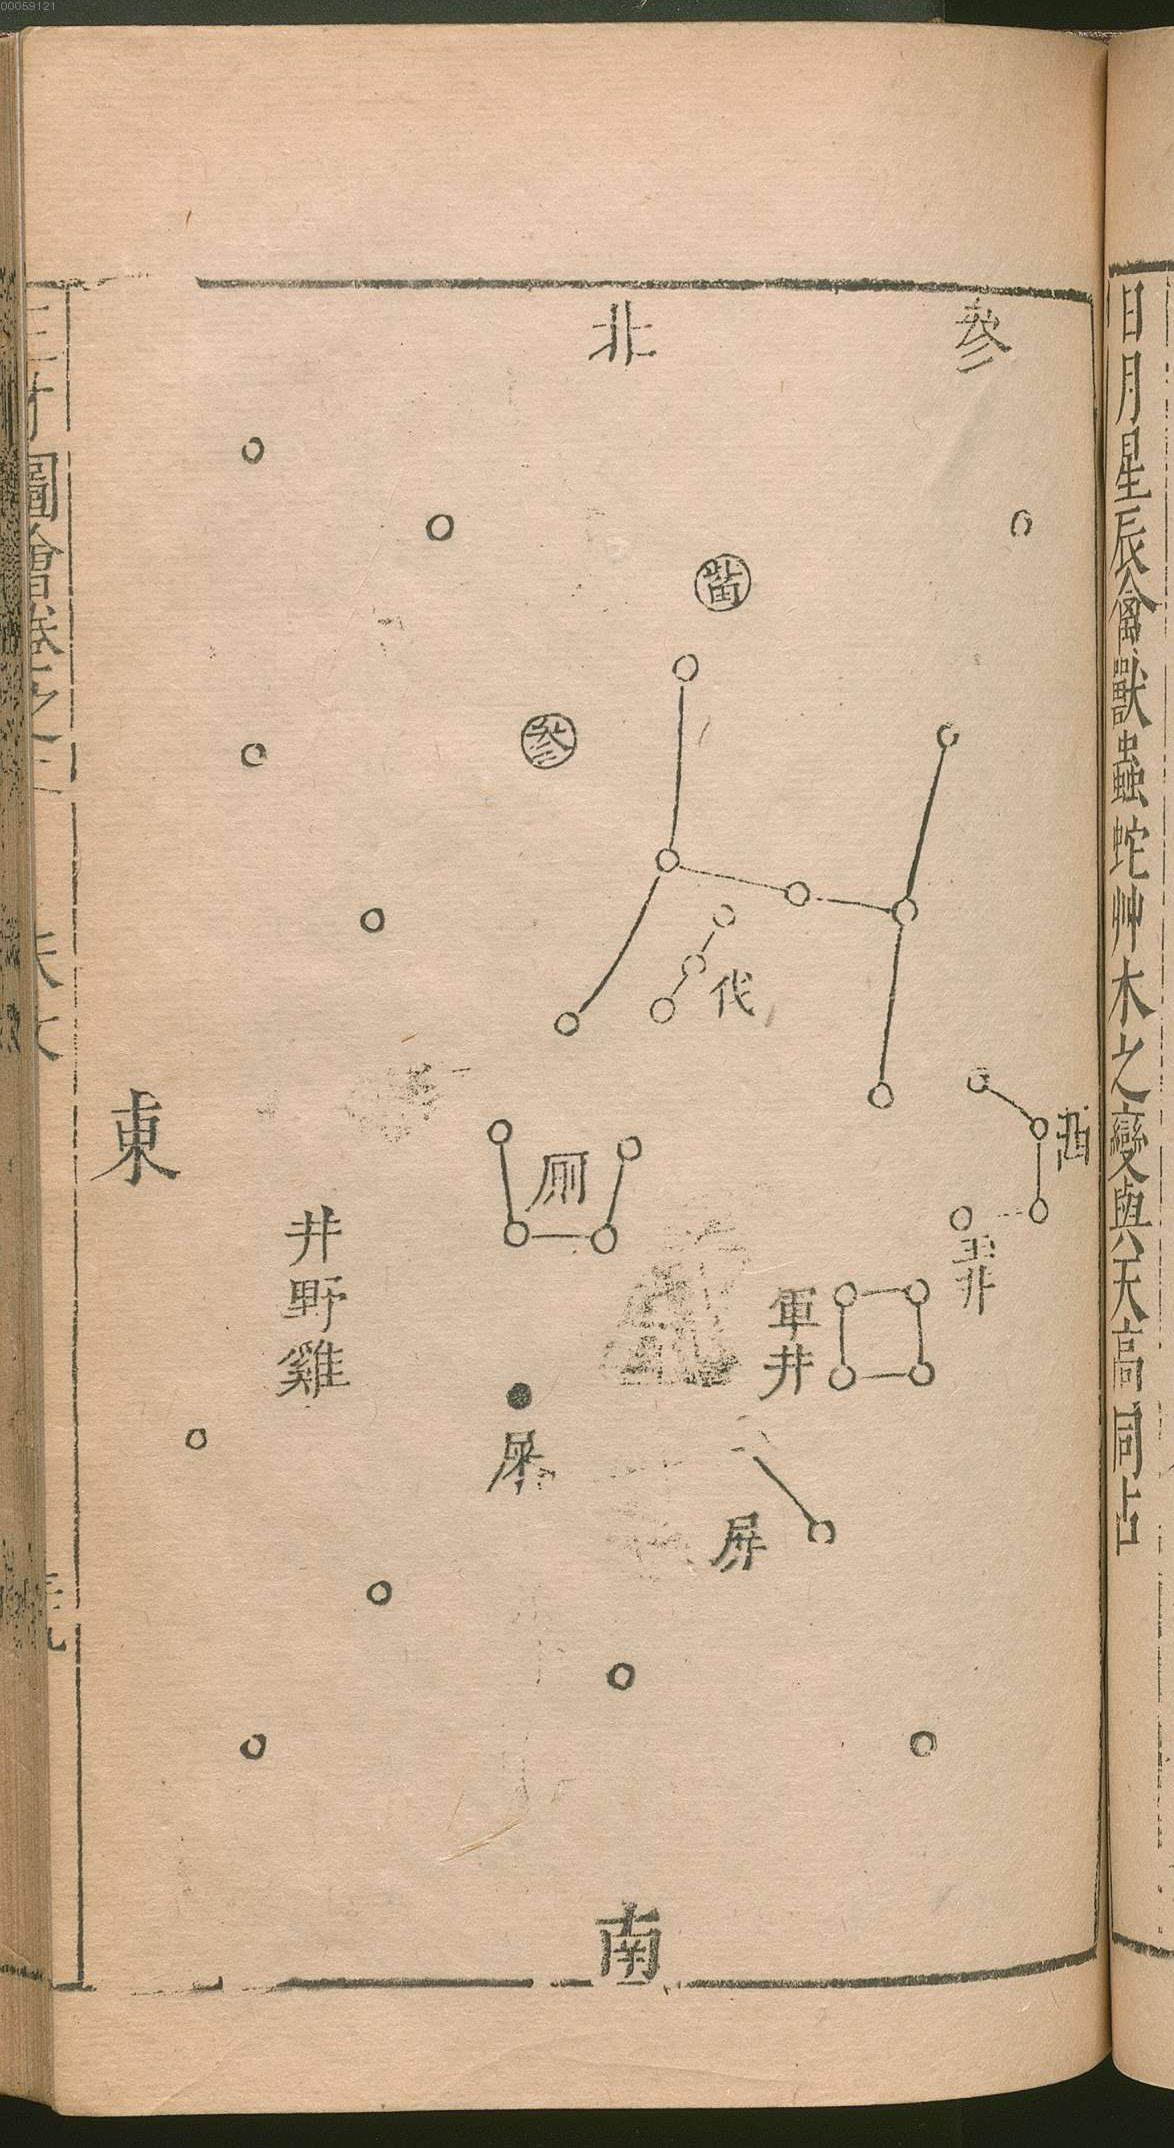 00059121
日月星辰禽獸蟲蛇艸木之變與天高同占
參
北
觜
參
伐
西
玉井
軍井
厠
屏
屎
井野雞
東
南
三才圖會卷之三
天文